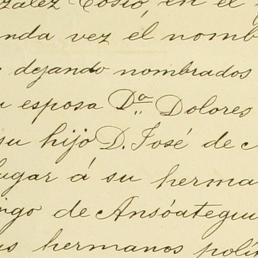 nzález Cosío, en el
unda vez el nomb
dejando nombrados
esposa Dª Dolores
su hijo D. José de
lugar á su herma
ingo de Ansóategui
us hermanos polí